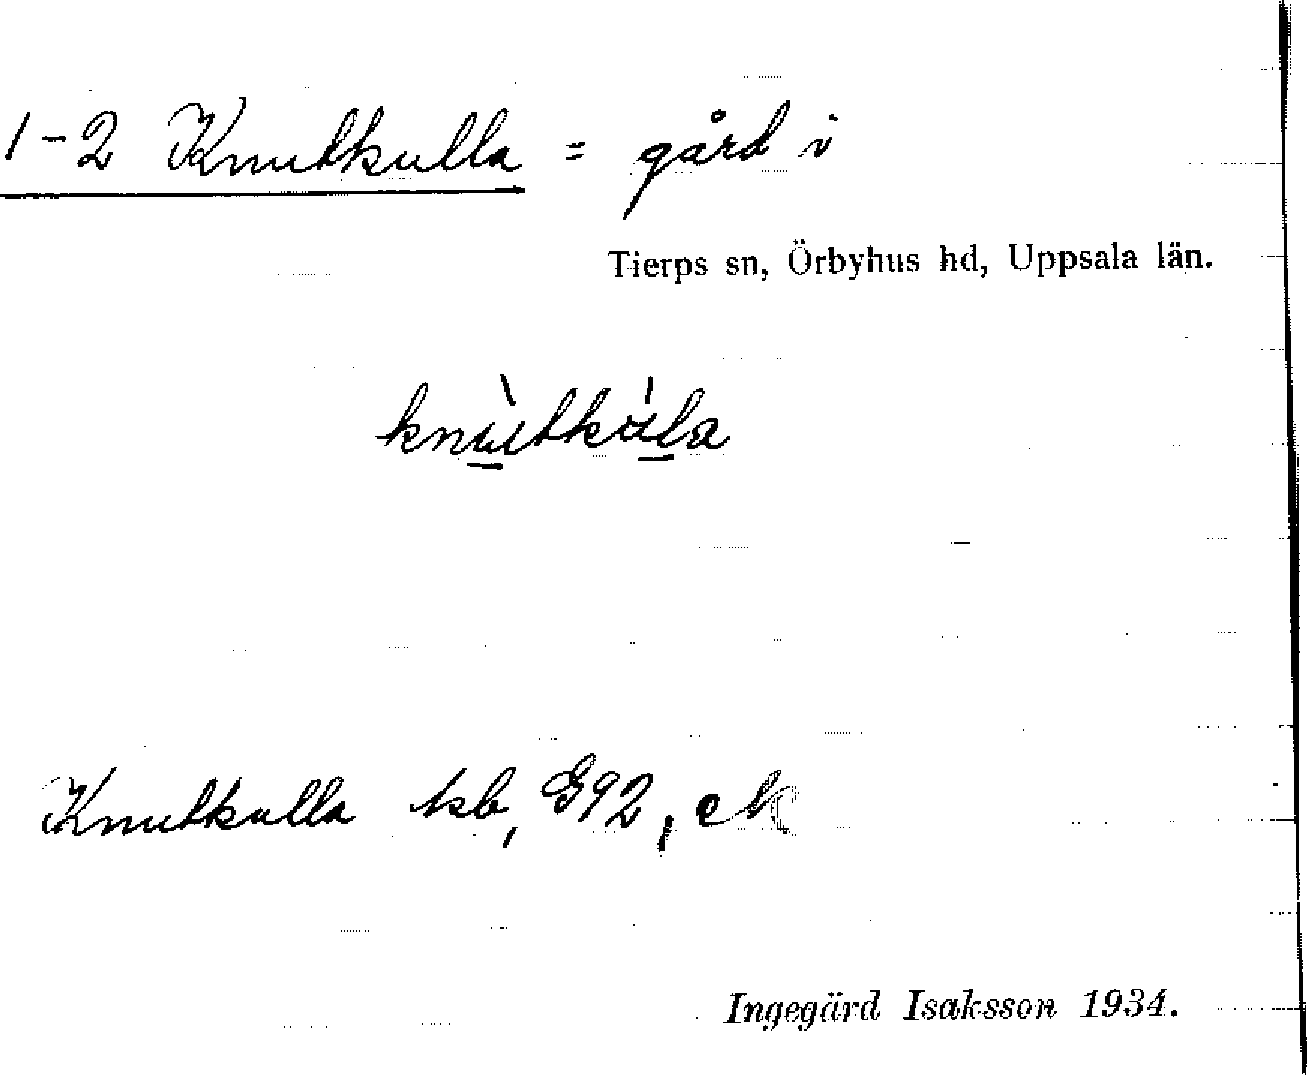 1-2 Knutkulla = gård i
Tierps sn, Örbyhus hd, Uppsala län.
knùtkúla
Knutkulla kb, G92, ek
Ingegärd Isaksson 1934.